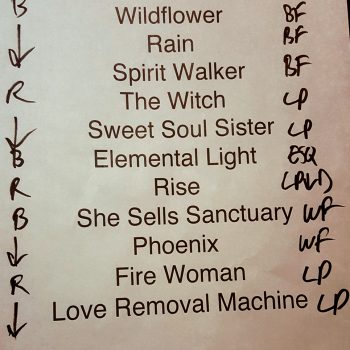 B Wildflower BF
Rain BF
Spirit Walker BF
R The Witch LP
Sweet Soul Sister LP
B Elemental Light ESQ
R Rise
B She Sells Sanctuary WF
Phoenix WF
R Fire Woman LP
Love Removal Machine LP